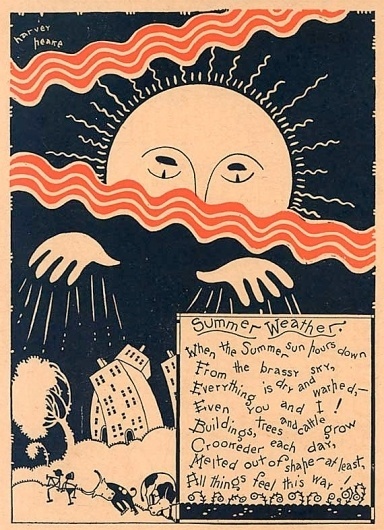 harvey
peake
Summer Weather:
When the Summer sun pours down
From the brassy sky,
Everything is dry and warped,—
Even you and I!
Buildings, trees and cattle grow
Crookeder each day,
Melted out of shape—at least,
All things feel this way!